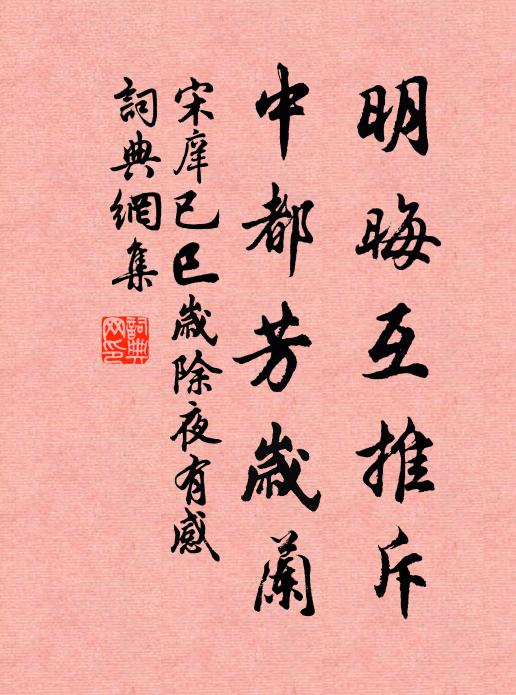 明晦互推斥
中都芳歲蘭
宋庠己巳歲除夜有感
詞典網集
詞典
网印